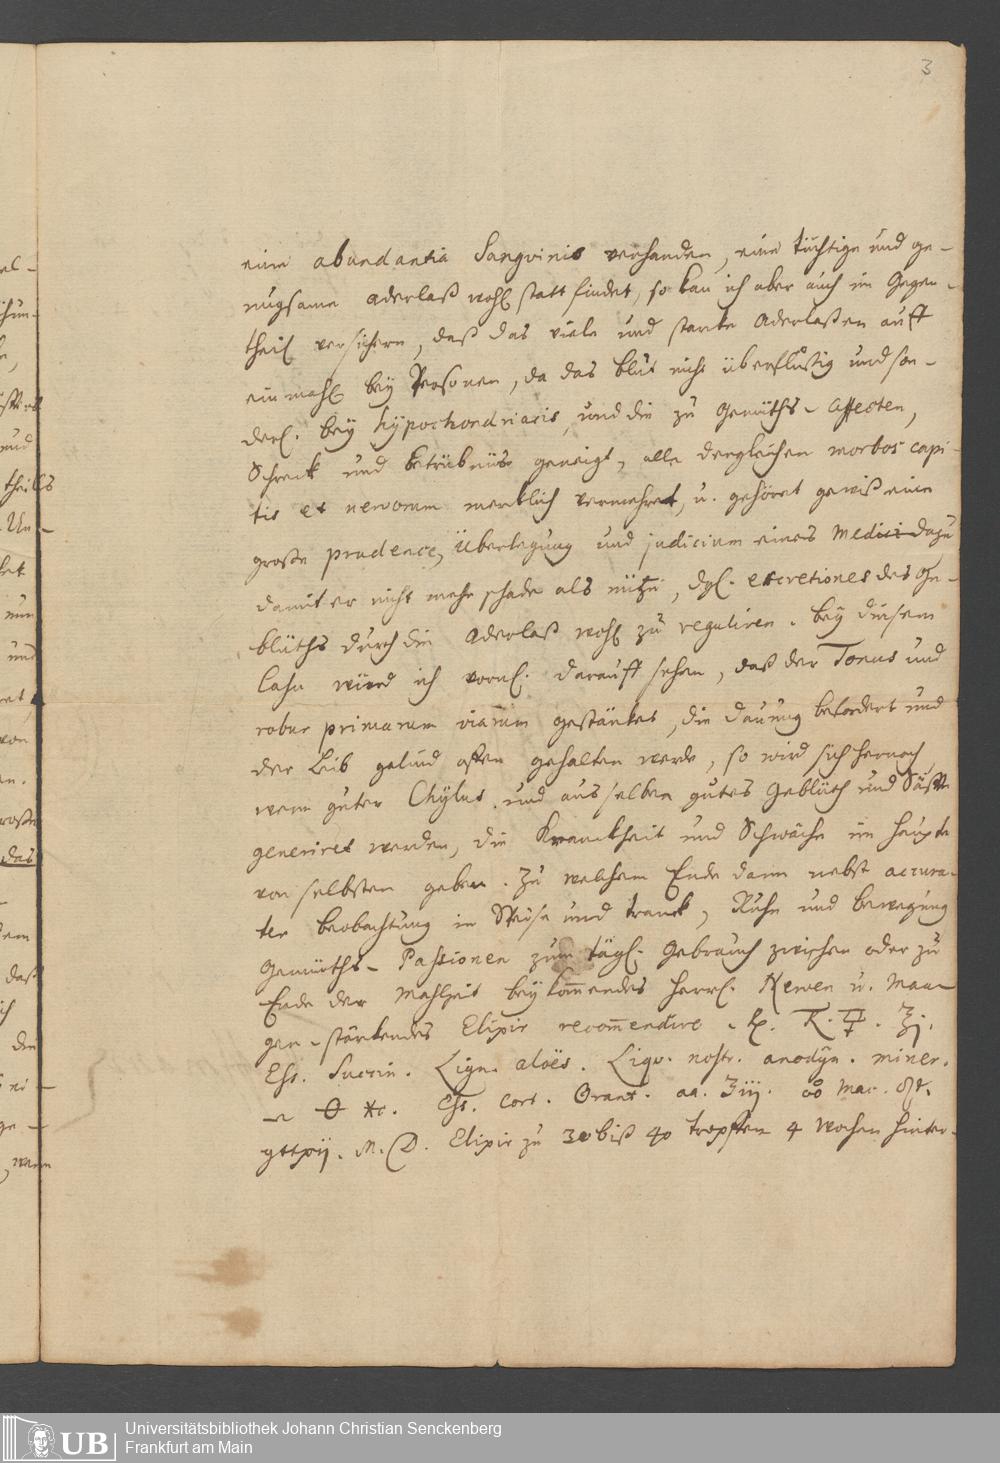 3
eine abundantia Sangvinis verhanden, eine tüchtige und ge-
nugsame aderlaß wohl statt findet, so kan ich aber auch im Gegen-
theil versichern, daß das viele und starke Aderlaßen auff
einmahl beÿ Personen, da das blut nicht überflüßig und son-
derl. beÿ hÿpochondriacis, und die zu Gemüths-Affecten,
Schreck und betrübnüs geneigt, alle dergleichen morbos capi-
tis et nervorum mercklich vermehret, u. gehöret gewiß eine
große prudence, Überlegung und judicium eines Medici dazu
damit er nicht mehr schade als nütze, dgl. excretiones des Ge-
blüths durch die Aderlaß wohl zu reguliren. beÿ diesem
Casu würd ich vornl. darauff sehen, daß der Tonus und
robur primarum viarum gestärket, die dauung befordert und
der Leib gelind offen gehalten werde, so wird sich hernach
wenn guter Chÿlus und aus selben gutes Geblüth und Säffte
generiret werden, die Kranckheit und Schwäche im Haupte
von selbsten geben. Zu welchem Ende dann nebst accura-
ter beobachtung in Speise und tranck, Ruhe und bewegung
Gemüths-Passionen zum tägl. Gebrauch zwischen oder zu
Ende der Mahlzeit beÿkommendes herrl. Nerven u. Mau-
gen-stärkendes Elixir recommendire. Rp.
Eß. Succin. Lign. aloës. Liqv. nostr. anodÿn. miner.
Eß. Cort. Orant. aa. Mac.
M. D. Elixir zu 30 biß 40 tropffen 4 Wochen hinter-
Universitätsbibliothek Johann Christian Senckenberg
Frankfurt am Main
UB